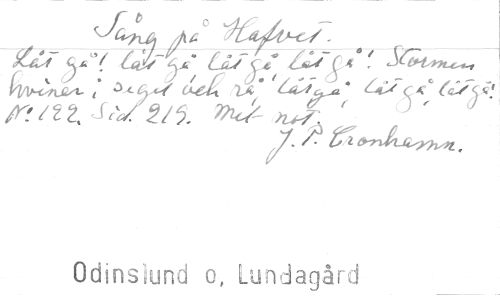 Sång på Hafvet.
Låt gå! låt gå, låt gå, låt gå! Stormen
hviner i segel och rå, låt gå, låt gå, låt gå!
No. 122. Sid. 219. Mit not.
J. P. Cronhamn.
Odinslund o, Lundagård